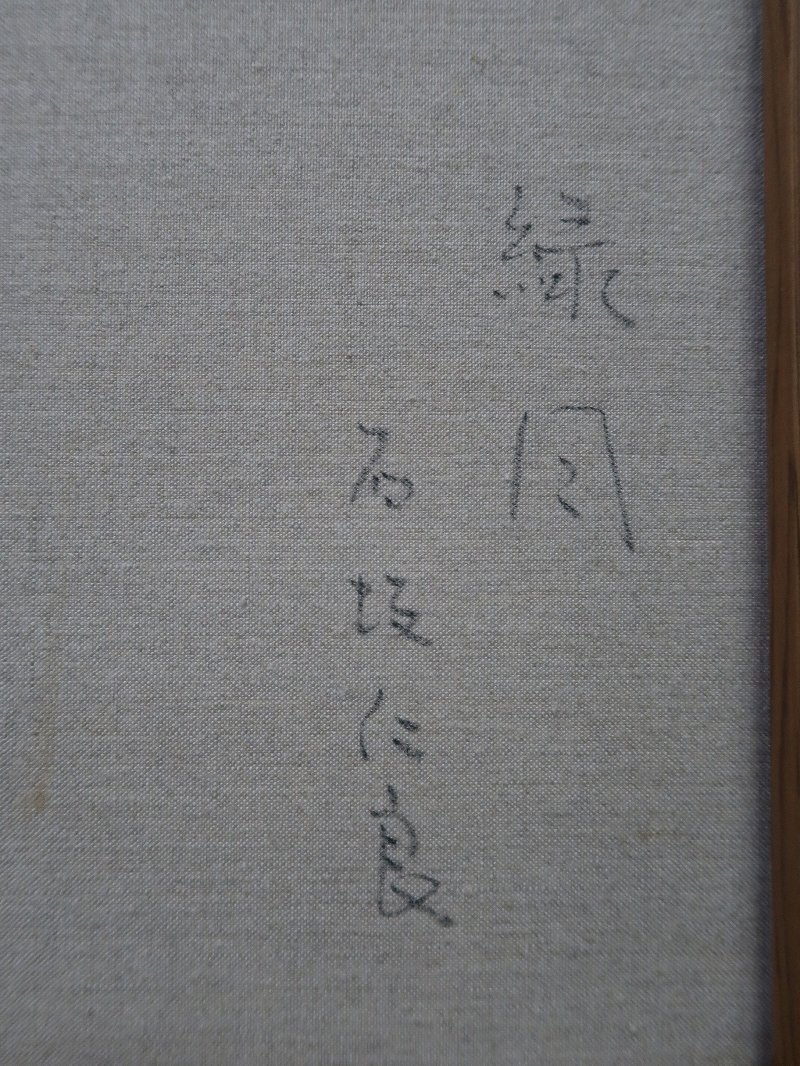 緑月
石坂仁良